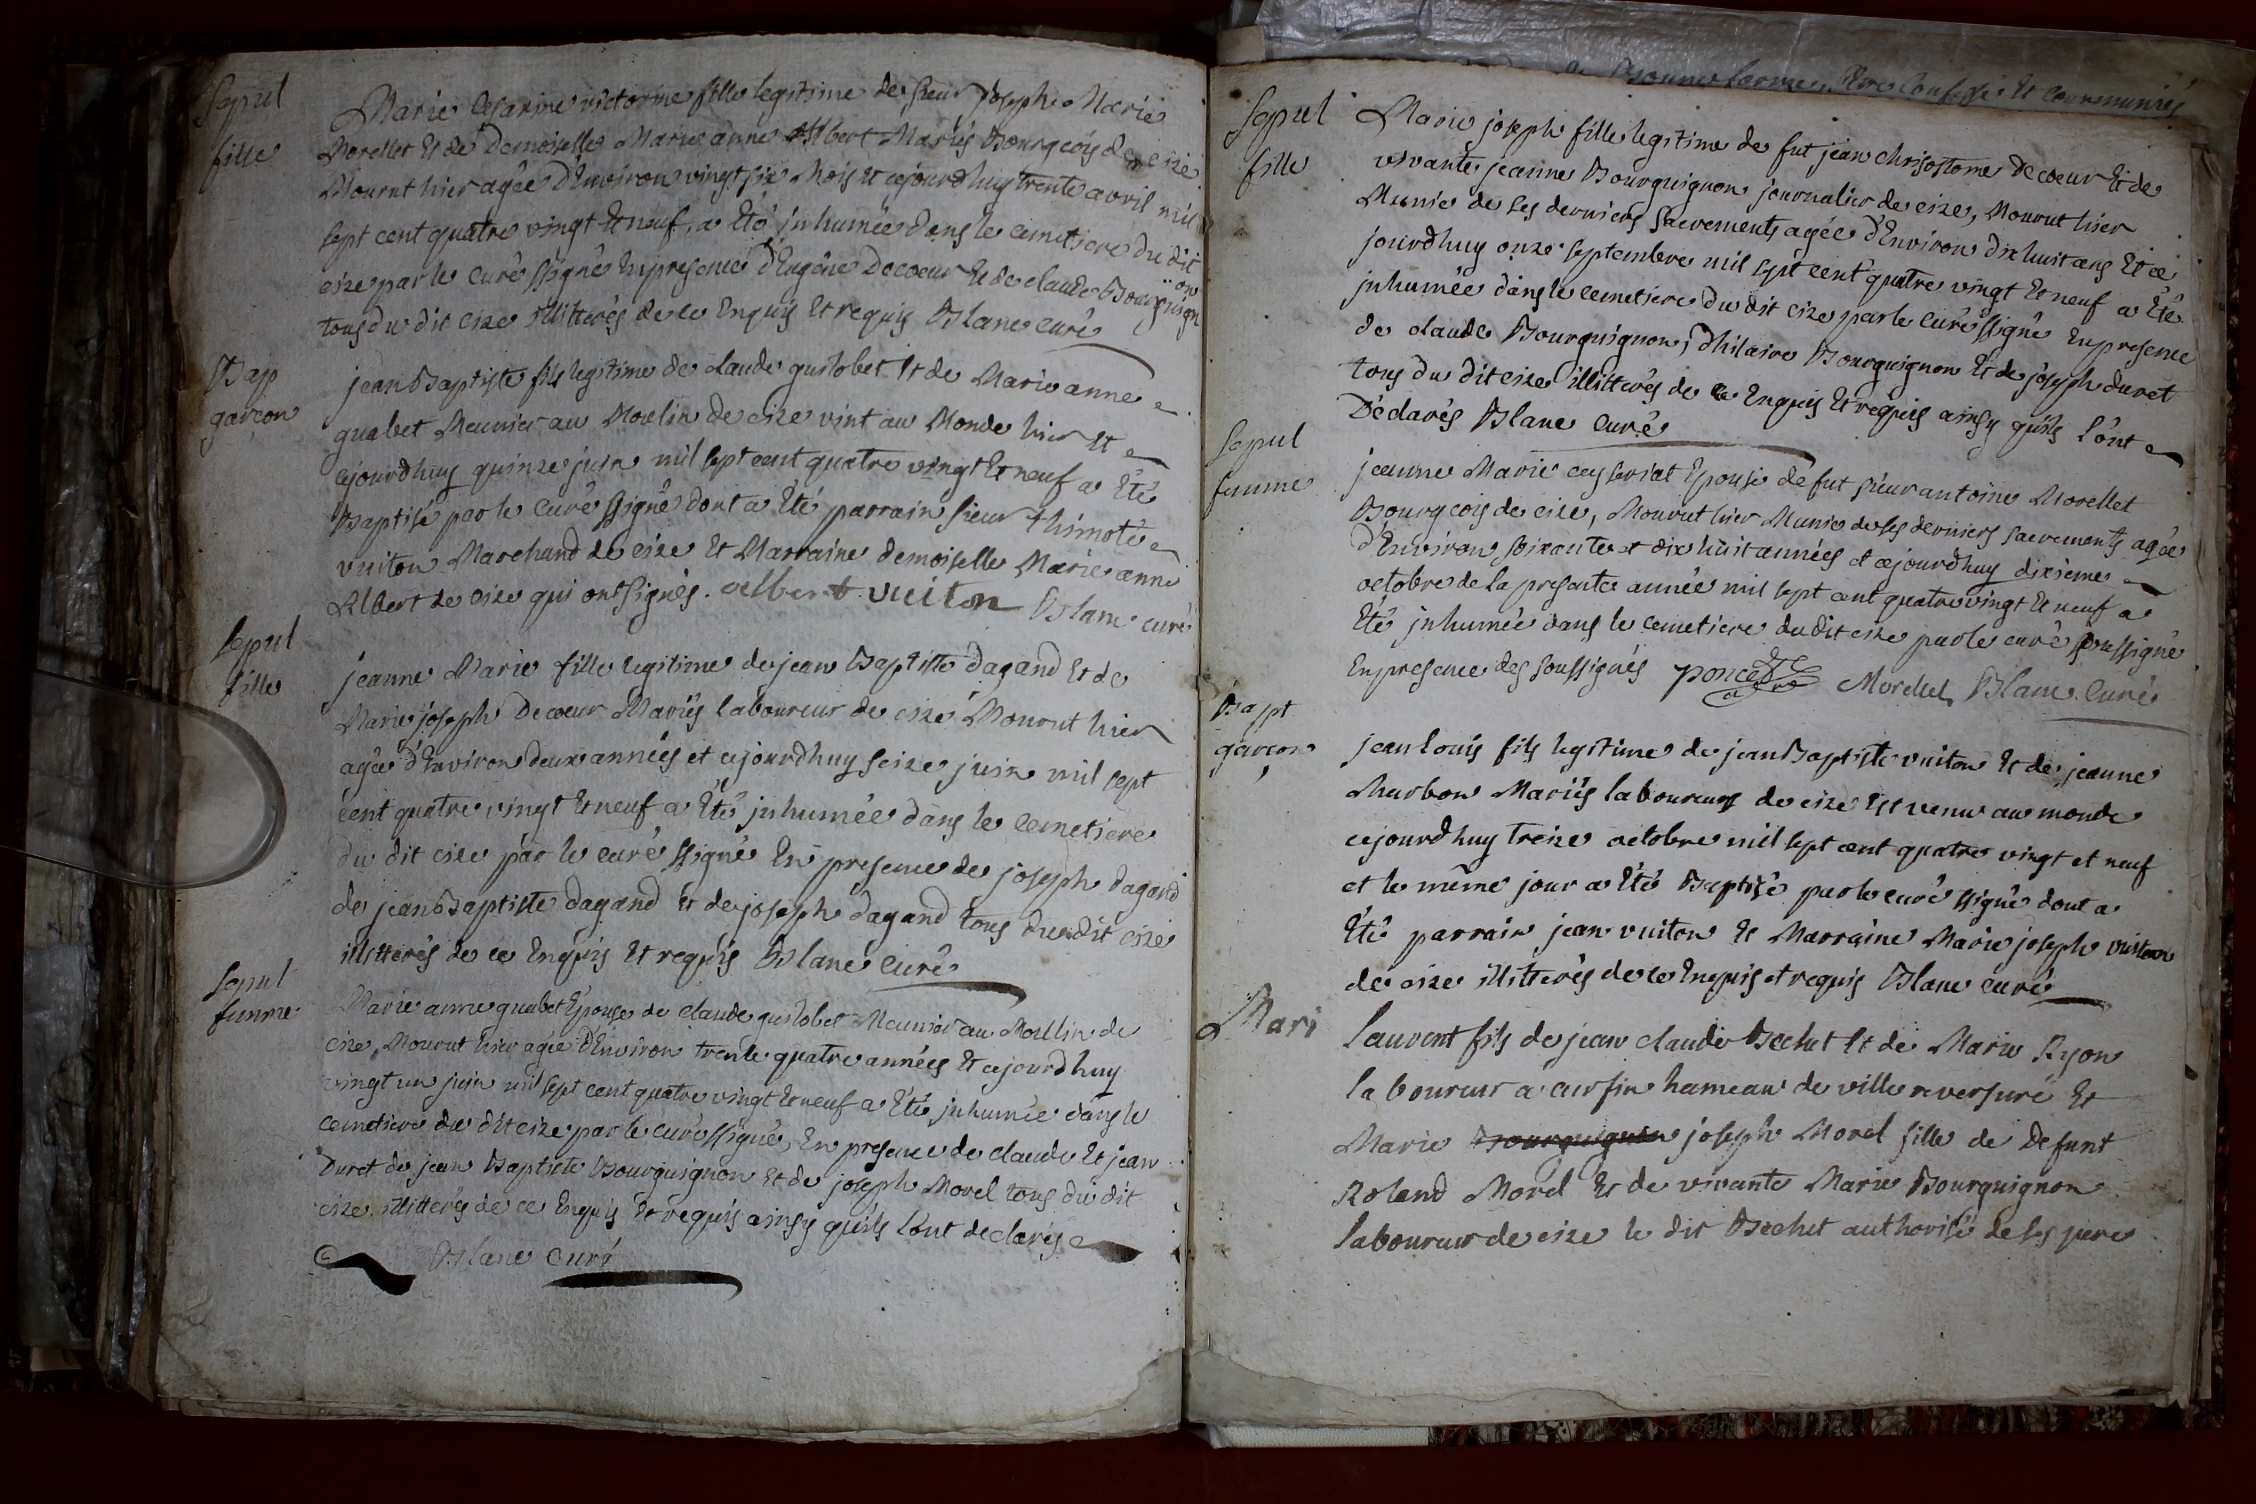 Sepul
fille
Marie Cesarine victorine fille legitime de sieur joseph Marie
Morellet Et de Demoiselle Marie anne Albert Mariés Bourgeois de cize
Mourut hier agée d'Environ vingt six Mois Et cejourdhuy trente avril mil
sept cent quatre vingt Et neuf, a Eté jnhumée dans le cemetiere du dit
cize par le curé ssigné En presence d'Eugéne Decoeur Et de claude Bourguignon
tous du dit cize illitterés de ce Enquis Et requis Blanc curé
Bap
garçon
jean Baptiste fils legitime de claude guilobet Et de Marie anne
guabet Meunier au Moulin de cize vint au Monde hier Et
cejourdhuy quinze juin mil sept cent quatre vingt Et neuf a Eté
Baptisé par le curé ssigné dont a Eté parrain sieur thimoté
vuiton Marchand de cize Et Marraine demoiselle Marie anne
Albert de cize qui ont signés. albert vuiton Blanc curé
Sepul
fille
jeanne Marie fille legitime de jean Baptiste dagand Et de
Marie joseph Decoeur Mariés laboureur de cize Mourut hier
agée d'Environ deux années et cejourdhuy seize juin mil sept
cent quatre vingt Et neuf a Eté jnhumée dans le cemetiere
du dit cize par le curé ssigné En presence de joseph dagand
de jean Baptiste dagand Et de joseph dagand tous du dit cize
illitterés de ce Enquis Et requis Blanc curé
Sepul
femme
Marie anne guabet Epouse de claude guilobet Meunier au Moullin de
cize, Mourut hier agée d'Environ trente quatre années Et cejourdhuy
vingt un juin mil sept cent quatre vingt Et neuf a Eté jnhumée dans le
cemetiere du dit cize par le curé ssigné, En presence de claude Et jean
Duret de jean Baptiste Bourguignon Et de joseph Morel tous du dit
cize illitterés de ce Enquis Et requis ainsy quils l'ont declarés
Blanc curé
Sepul
fille
Marie joseph fille legitime de fut jean chrisostome Decoeur Et de
vivante jeanne Bourguignon journalier de cize, Mourut hier
Munie de ses derniers sacrements agée d'Environ dix huit ans Et ce
jourdhuy onze septembre mil sept cent quatre vingt Et neuf a Eté
jnhumée dans le cemetiere du dit cize par le curé ssigné En presence
de claude Bourguignon, d'hilaire Bourguignon Et de joseph duret
tous du dit cize illitterés de ce Enquis Et requis ainsy quils l'ont
Déclarés Blanc curé
Sepul
femme
jeanne Marie ceyseriat Epouse de fut sieur antoine Morellet
Bourgeois de cize, Mourut hier Munie de ses derniers sacrements agée
d'Environ soixante et dix huit années et cejourdhuy dixieme
octobre de la presente année mil sept cent quatre vingt Et neuf a
Eté jnhumée dans le cemetiere du dit cize par le curé soussigné
En presence des soussignés poncet Morellet Blanc Curé
Bapt
garçon
jean louis fils legitime de jean Baptiste vuiton Et de jeanne
Marbou Mariés laboureurs de cize Est venu au monde
cejourdhuy treize octobre mil sept cent quatre vingt et neuf
et le même jour a Eté Baptisé par le curé ssigné dont a
Eté parrain jean vuiton Et Marraine Marie joseph vuiton
de cize illitterés de ce Enquis et requis Blanc curé
Mari
laurent fils de jean claude Bechet Et de Marie Ryon
laboureur a cursin hameau de villereversure Et
Marie Bourguignon joseph Morel fille de Defunt
Roland Morel Et de vivante Marie Bourguignon
laboureur de cize le dit Bechet authorisé de ses pere